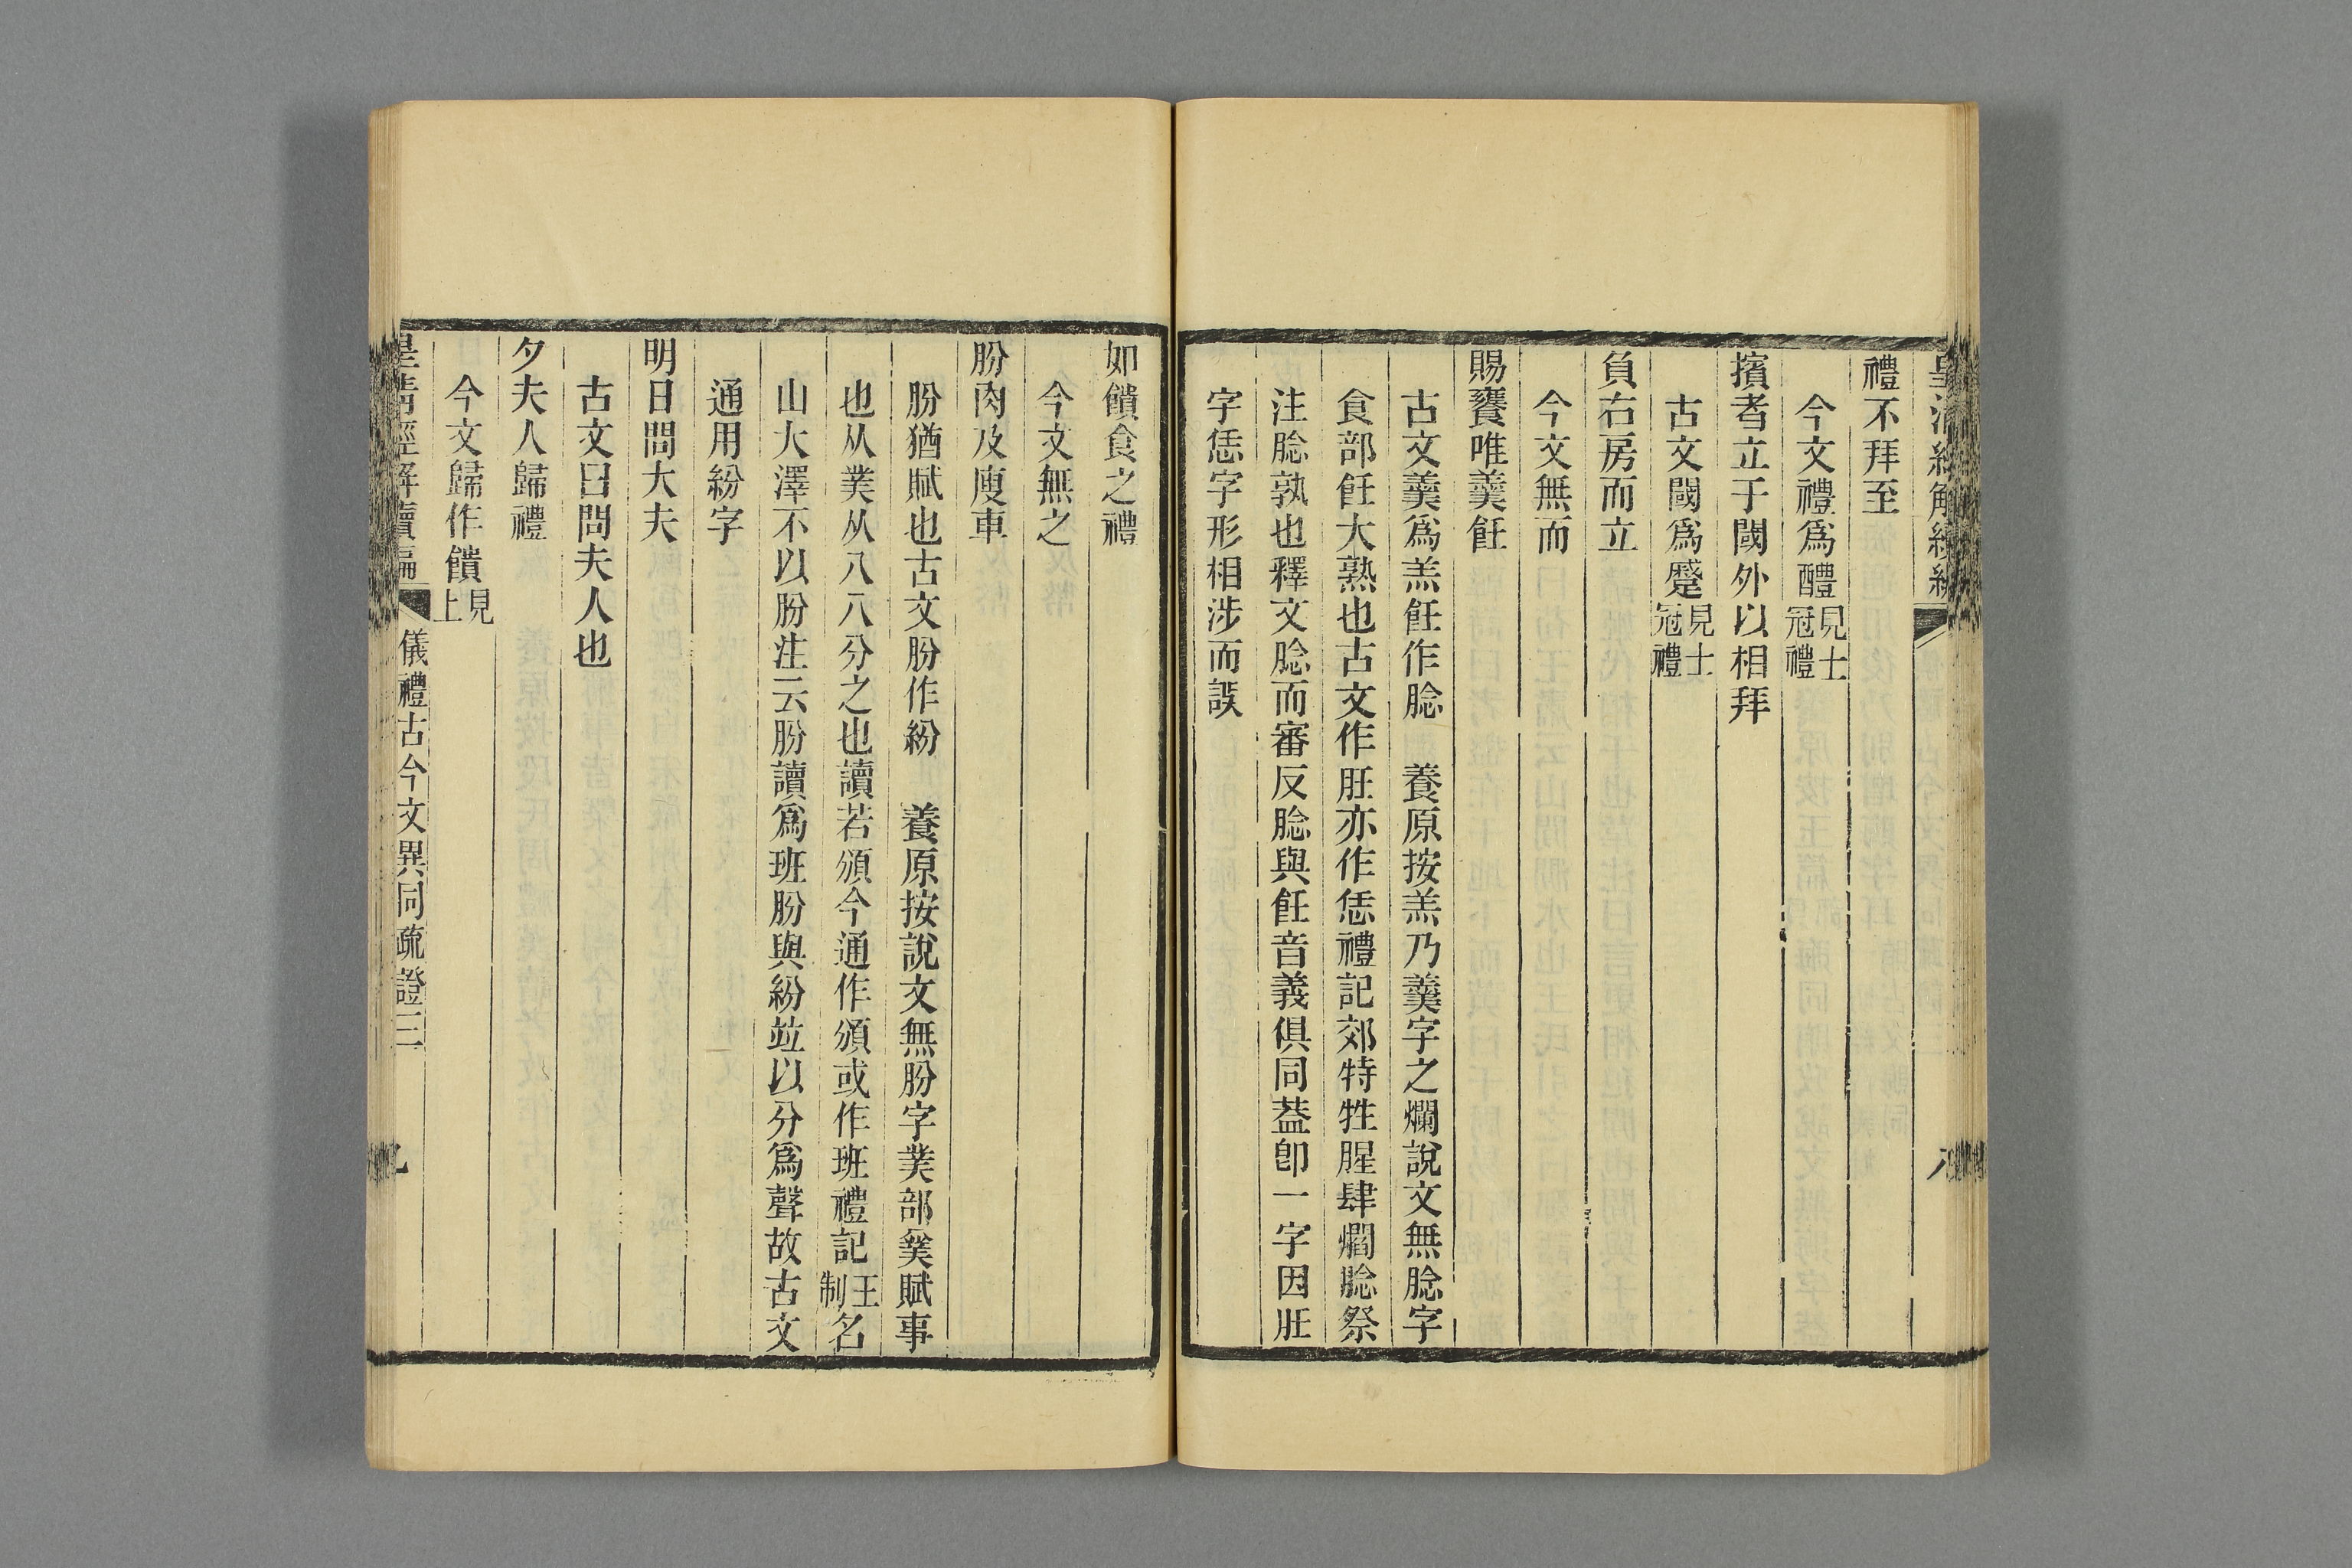 皇清經解續編
禮不拜至
今文禮爲醴見士冠禮
擯者立于閾外以相拜
古文閾爲蹙見士冠禮
負右房而立
今文無而
賜饔唯羹飪
古文羹爲羔飪作腍　養原按羔乃羹字之爛說文無腍字
食部飪大熟也古文作肚亦作恁禮記郊特牲腥肆爓腍祭
注腍孰也釋文腍而審反腍與飪音義俱同葢卽一字因肚
字恁字形相涉而誤
如饋食之禮
今文無之
肦肉及廋車
肦猶賦也古文肦作紛　養原按說文無肦字菐部㒒賦事
也从菐从八八分之也讀若頒今通作頒或作班禮記王制名
山大澤不以肦注云肦讀爲班肦與紛竝以分爲聲故古文
通用紛字
明日問大夫
古文曰問夫人也
夕夫人歸禮
今文歸作饋見上
皇淸經解續編　儀禮古今文異同疏證三　九